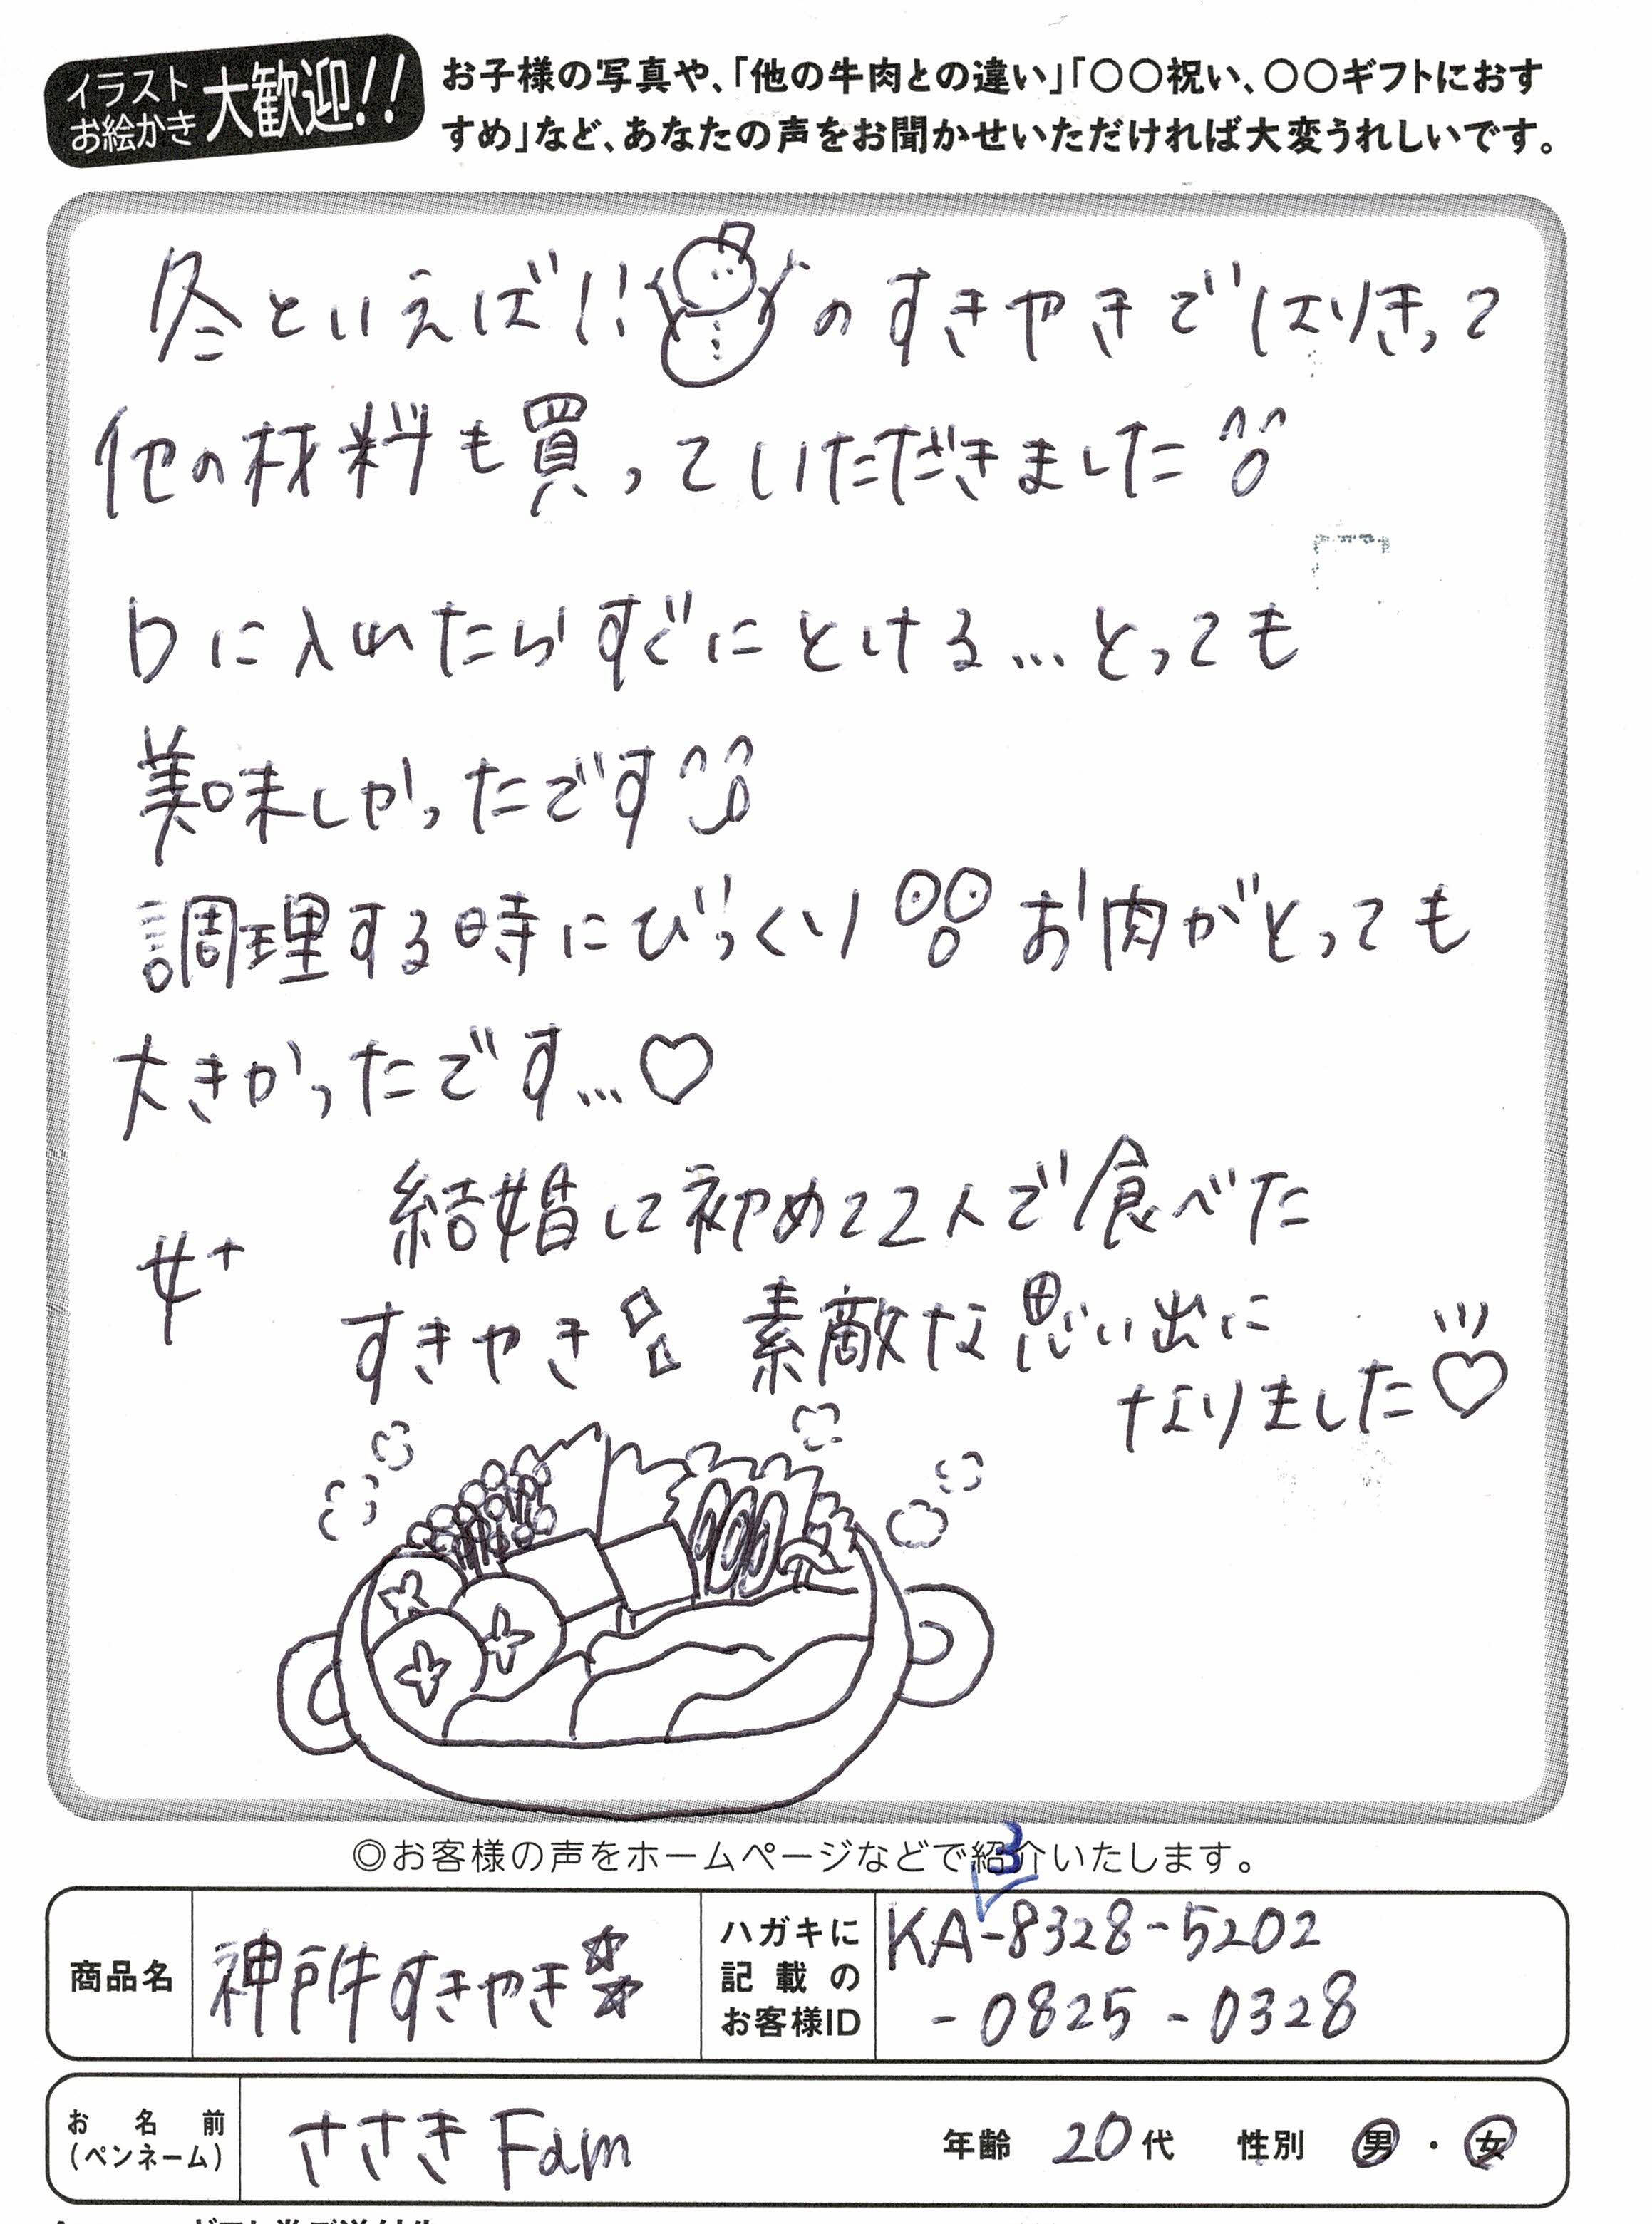 イラスト
お絵かき
大歓迎!!
お子様の写真や、「他の牛肉との違い」「〇〇祝い、〇〇ギフトにおす
すめ」など、あなたの声をお聞かせいただければ大変うれしいです。
冬といえば!! のすきやきではりきって
他の材料も買っていただきました
口に入れたらすぐにとける...とっても
美味しかったです
調理する時にびっくり お肉がとっても
大きかったです...♡
結婚して初めて2人で食べた
すきやき 素敵な思い出に
なりました♡
◎お客様の声をホームページなどで紹介いたします。
3
商品名
神戸牛すきやき☆☆
ハガキに
記載の
お客様ID
KA-8328-5202
-0825-0328
お名前
(ペンネーム)
ささきFam
年齢 20代 性別 男・女